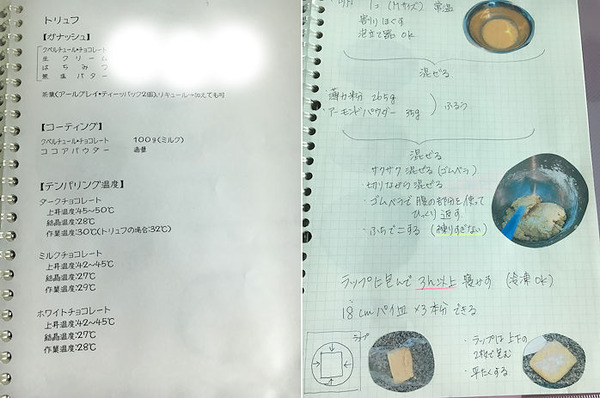 トリュフ
【ガナッシュ】
クベルチュール・チョコレート
生 クリーム
はちみつ
無塩バター
茶葉(アールグレイ・ティーバック2個)、リキュール→加えても可
【コーティング】
クベルチュール・チョコレート 100g(ミルク)
ココアパウダー 適量
【テンパリング温度】
ダークチョコレート
上昇温度:45~50℃
結晶温度:28℃
作業温度:30℃(トリュフの場合:32℃)
ミルクチョコレート
上昇温度:42~45℃
結晶温度:27℃
作業温度:29℃
ホワイトチョコレート
上昇温度:42~45℃
結晶温度:27℃
作業温度:28℃
(Mサイズ) 常温
割りほぐす
泡立て器 OK
混ぜる
・薄力粉 265g
・アーモンドパウダー 35g
ふるう
混ぜる
・サクサク混ぜる(ゴムベラ)
・切りながら混ぜる
・ゴムベラで腹の部分を使って
ひっくり返す
・ふちでこする(練りすぎない)
ラップに包んで 3h以上 寝かす (冷凍OK)
18cmパイ皿×3本分できる
ラップ
・ラップは上下の
2枚で包む
・平たくする